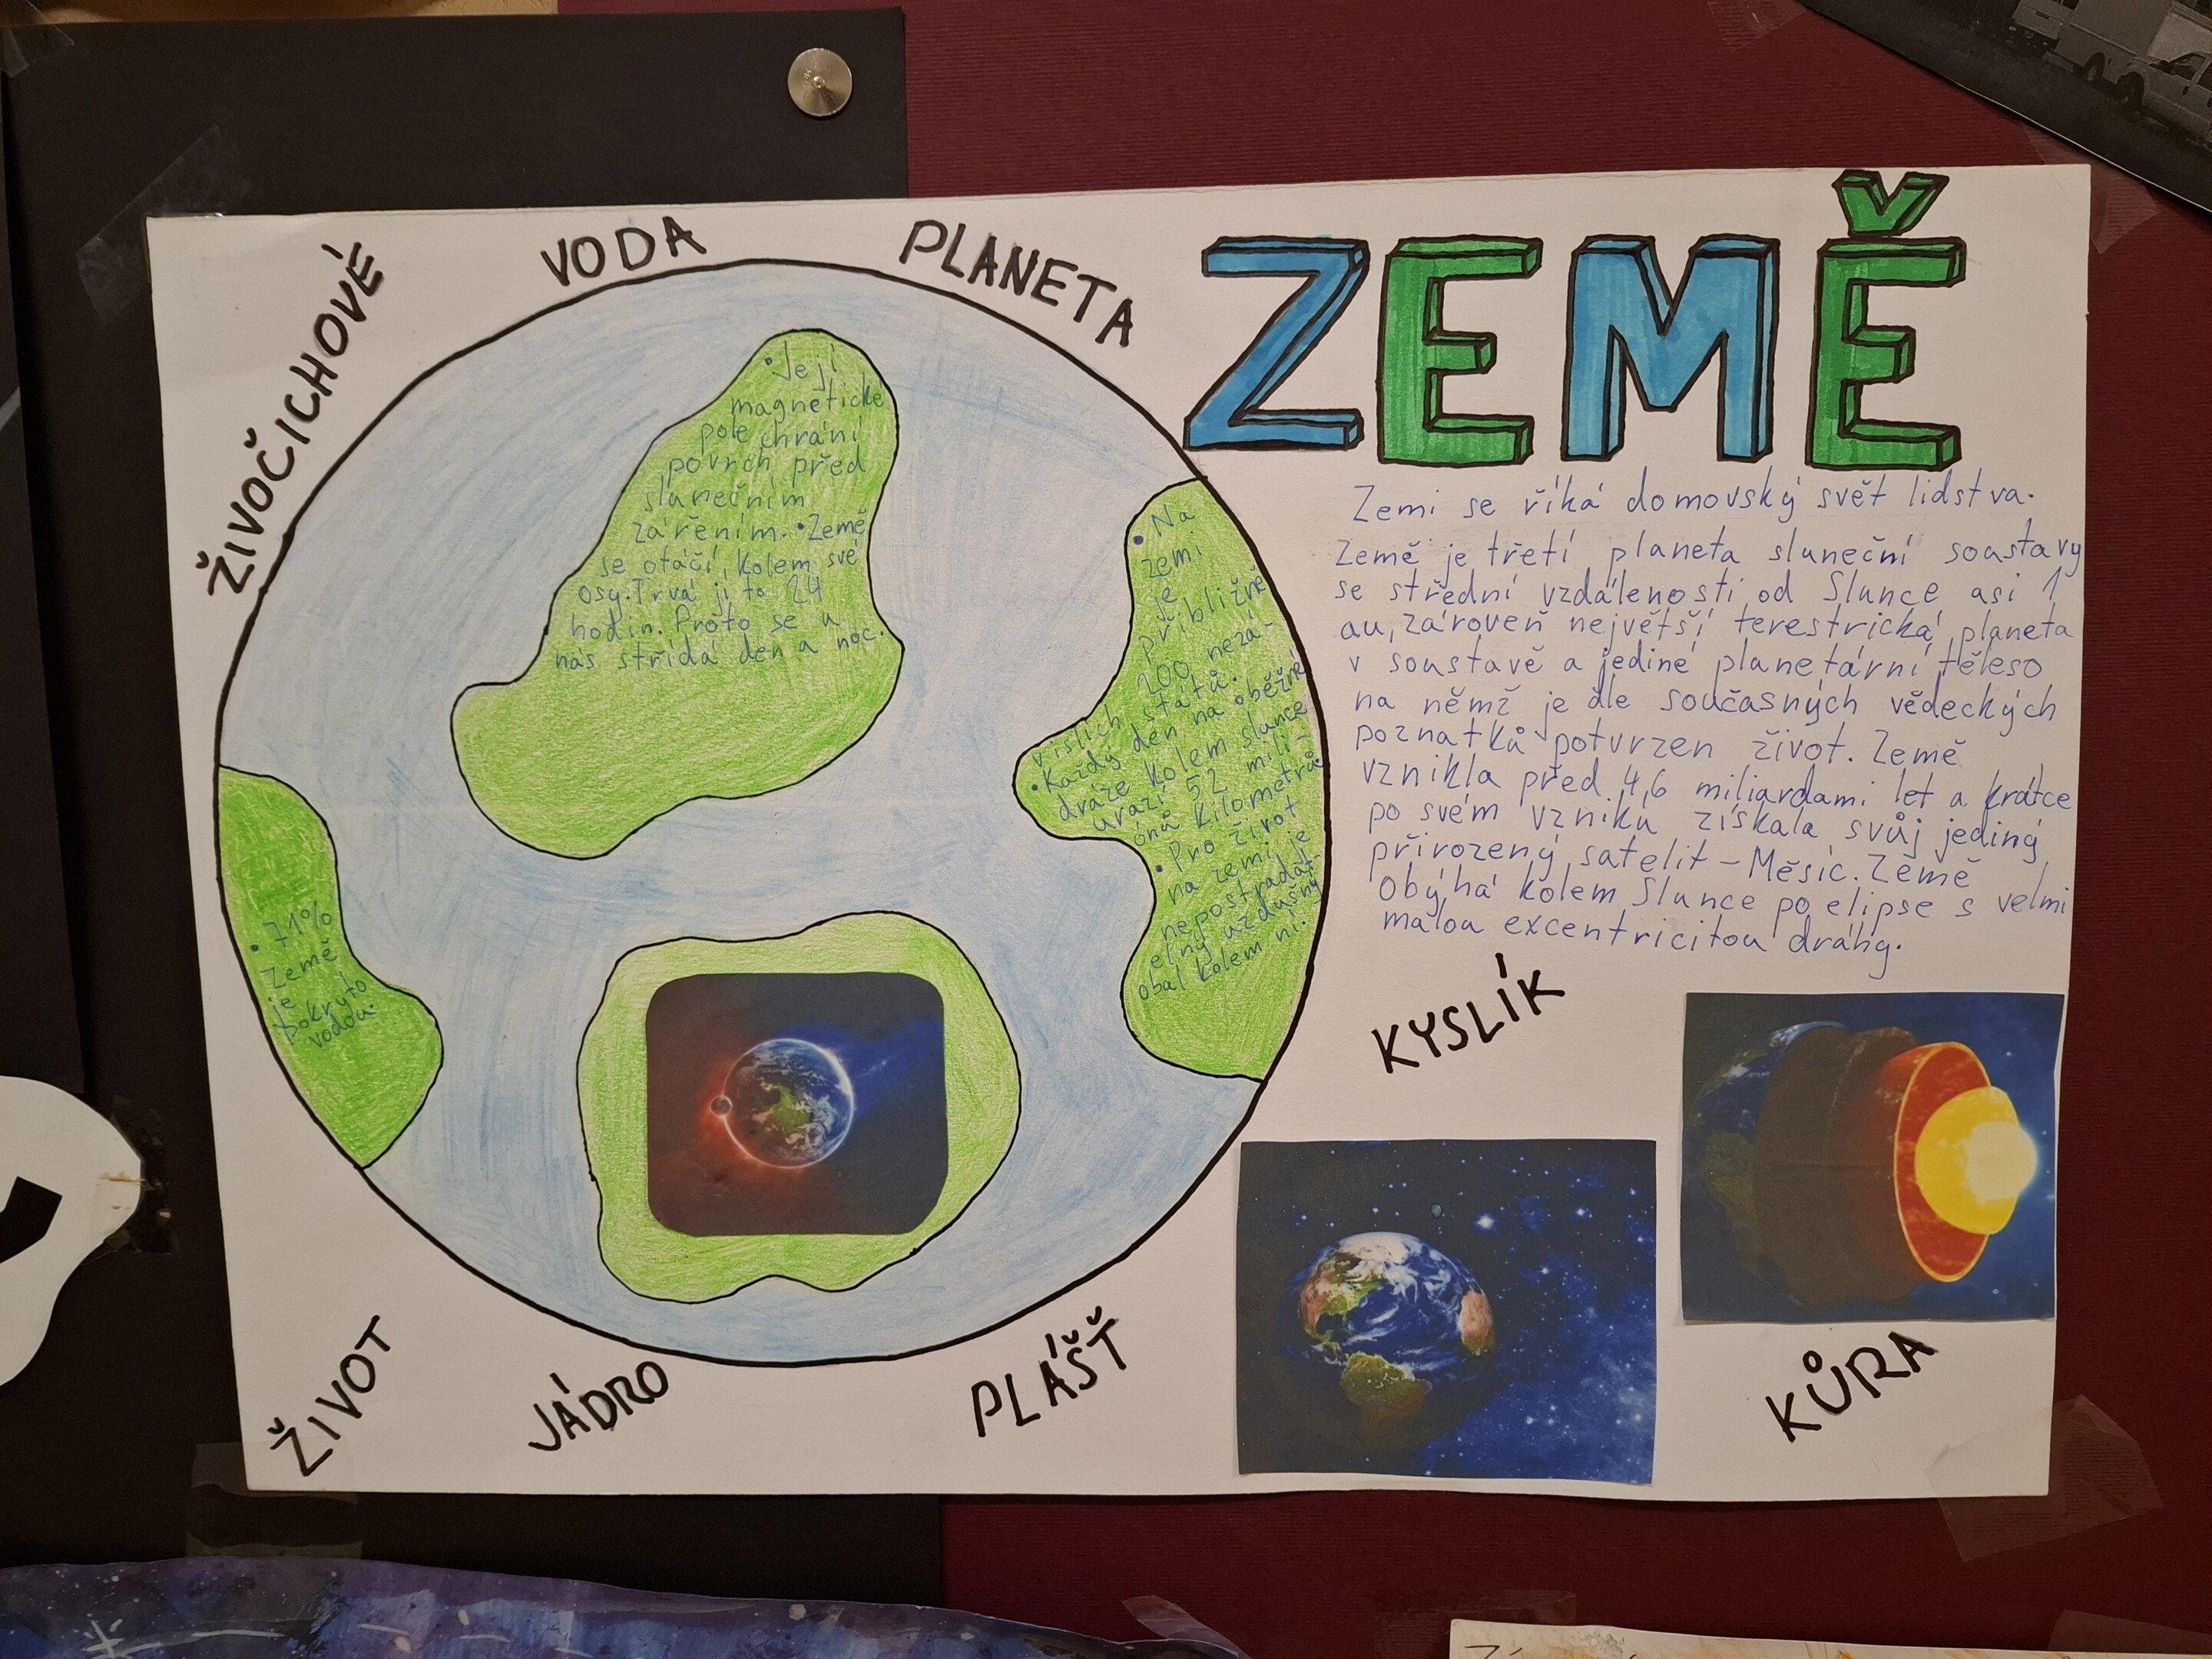 ŽIVOČICHOVÉ
VODA
PLANETA
ZEMĚ
Zemi se říká domovský svět lidstva.
Země je třetí planeta sluneční soustavy
se střední vzdáleností od Slunce asi 1
au, zároveň největší terestrická planeta
v soustavě a jediné planetární těleso
na němž je dle současných vědeckých
poznatků potvrzen život. Země
vznikla před 4,6 miliardami let a krátce
po svém vzniku získala svůj jediný
přirozený satelit – Měsíc. Země
Obýhá kolem Slunce po elipse s velmi
malou excentricitou dráhy.
• Její
magnetické
pole chrání
povrch před
slunečním
zářením. • Země
se otáčí kolem své
osy. Trvá jí to 24
hodin. Proto se u
nás střídá den a noc.
• Na
zemi
je
přibližně
200 nezá-
vislích států.
• Každý den na oběžné
dráze kolem slunce
urazí 52 mili-
ónů kilometrů
• Pro život
na zemi je
nepostradat-
elný vzdušný
obal kolem ní.
• 71%
Země
je
pokryto
vodou.
KYSLÍK
ŽIVOT
JÁDRO
PLÁŠŤ
KŮRA